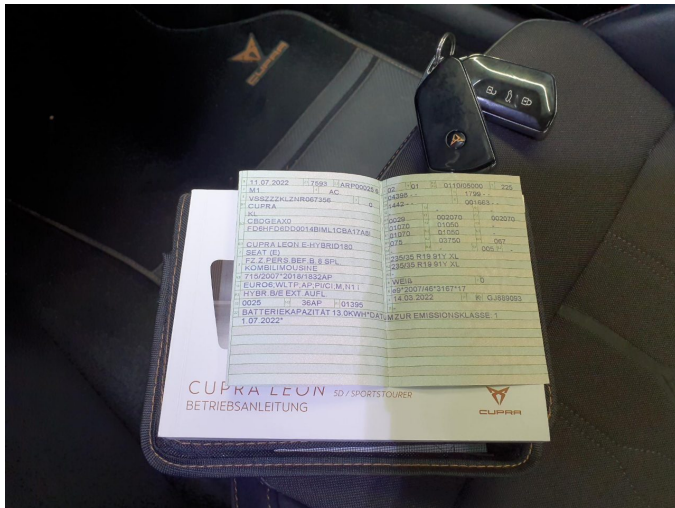 CUPRA
11.07.2022 7593 ARP00025 6
M1 AC
VSSZZZKLZNR067356 0
CUPRA
KL
CBDGEAX0
FD6HFD6DD0014BIML1CBA17ABI
CUPRA LEON E-HYBRID180
SEAT (E)
FZ.Z.PERS.BEF.B. 8 SPL.
KOMBILIMOUSINE
715/2007*2018/1832AP
EURO6;WLTP,AP,PI/CI,M,N1 I
HYBR.B/E EXT.AUFL.
0025 36AP 01395
BATTERIEKAPAZITÄT 13.0KWH*DATUM ZUR EMISSIONSKLASSE: 1
1.07.2022*
02 01 0110/05000 225
04398 - - 1799 - -
1442 - - 001663
0029 002070 002070
01070 01050 -
01070 01050 -
075 03750 067
235/35 R19 91Y XL
235/35 R19 91Y XL
WEIß 0
e9*2007/46*3167*17
14.03.2022 K GJ889093
CUPRA LEON 5D / SPORTSTOURER
BETRIEBSANLEITUNG
CUPRA